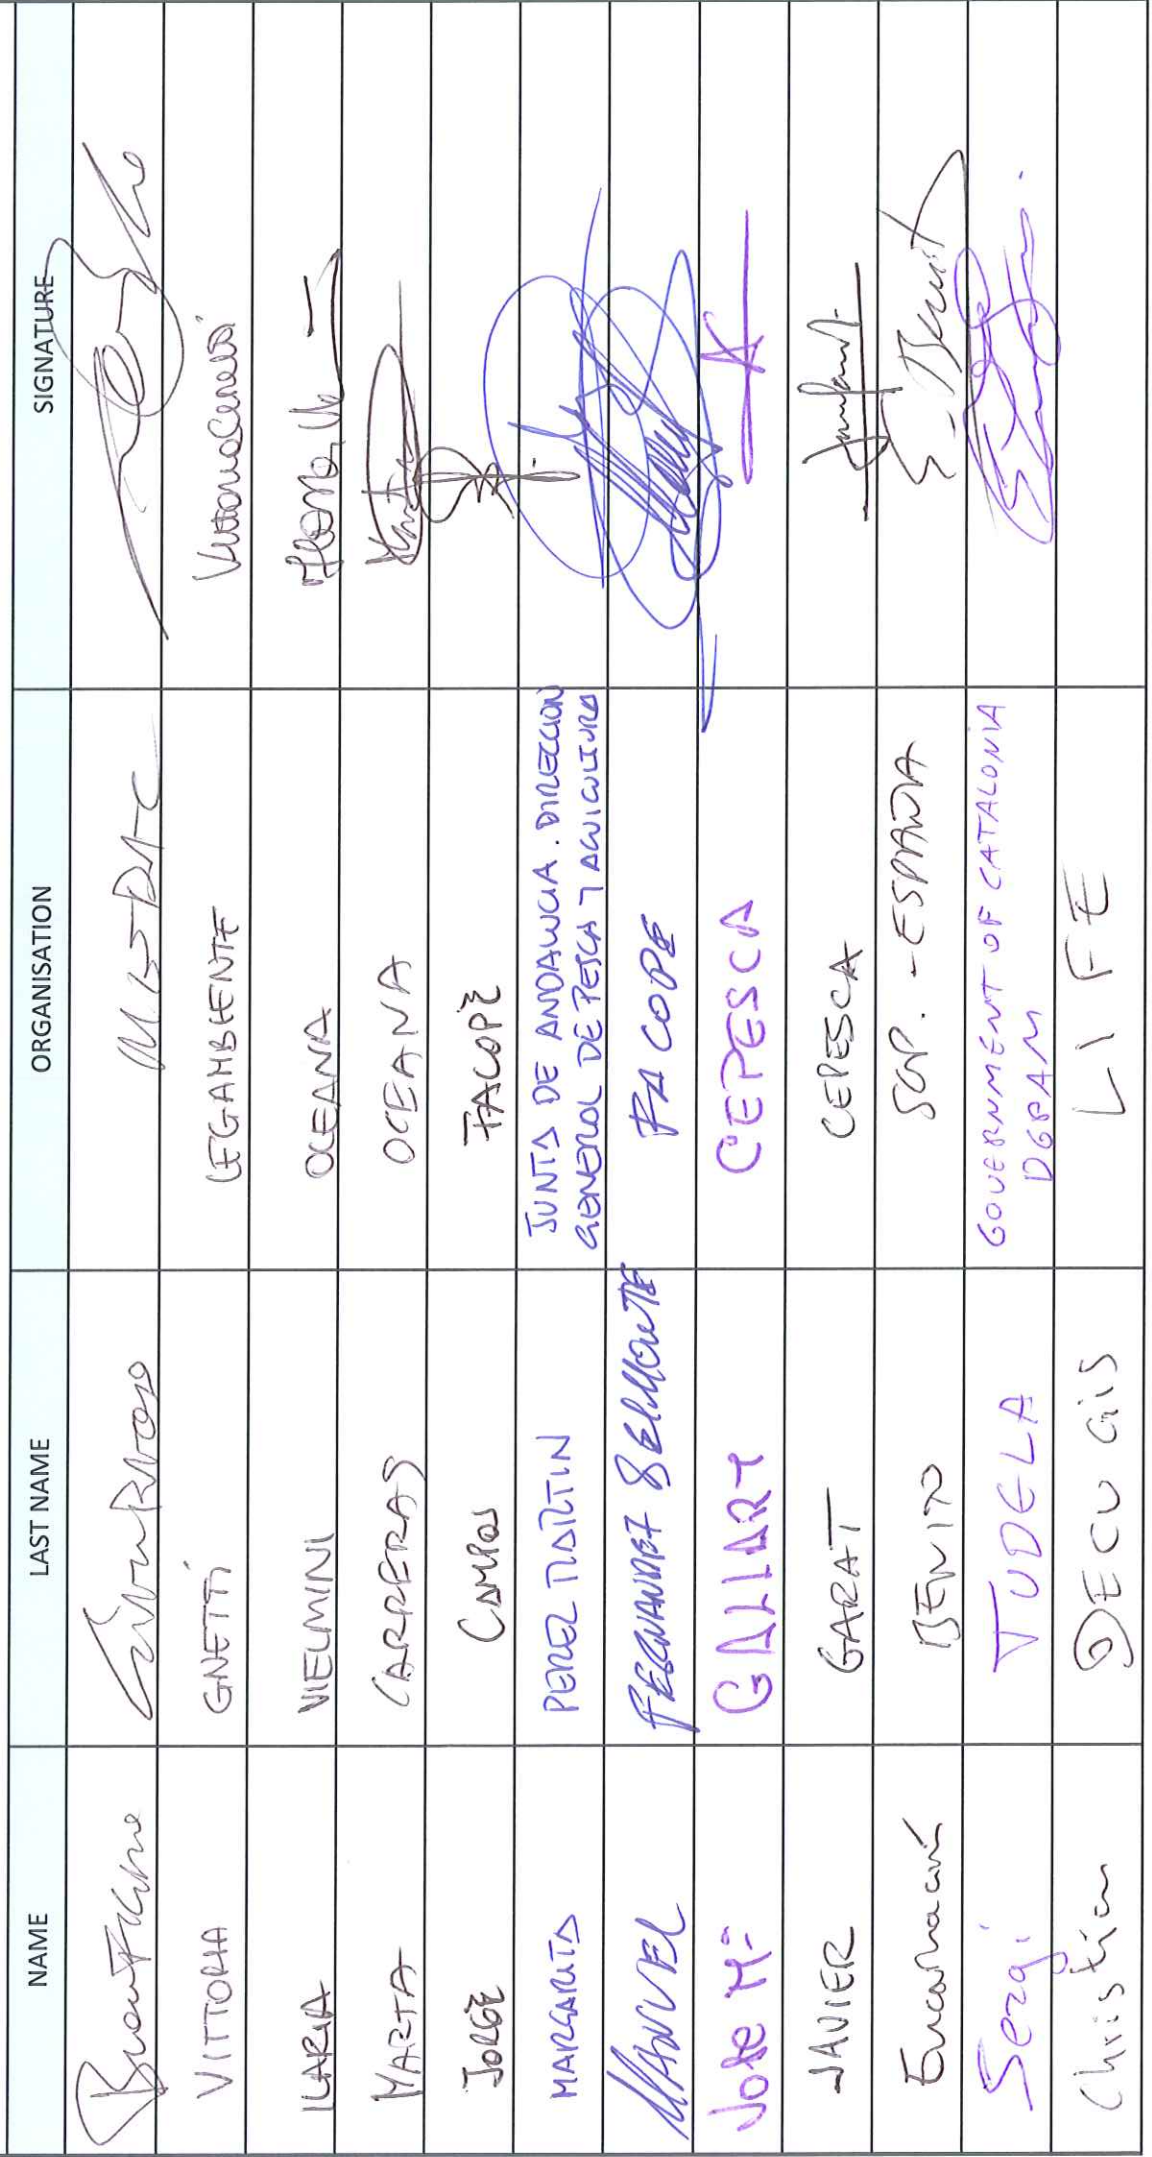 NAME LAST NAME ORGANISATION SIGNATURE
VITTORIA GNETTI LEGAMBIENTE
ILARIA VIELMINI OCEANA
MARTA CARRERAS OCEANA
JORGE CAMPOS FACOPE
MARGARITA PEREZ MARTIN JUNTA DE ANDALUCIA. DIRECCION
GENERAL DE PESCA Y ACUICULTURA
MANUEL FERNANDEZ BELMONTE FACOPE
José Mª GALLART CEPESCA
JAVIER GARAT CEPESCA
Encarnación BENITO SGP.-ESPAÑA E. Benito
Sergi TUDELA GOVERNMENT OF CATALONIA
DGPAM
Christian DECUGIS LIFE